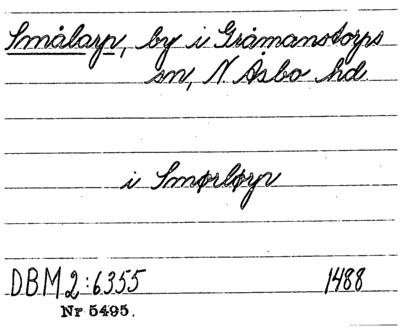 Smålarp, by i Gråmanstorps
sn, N. Åsbo hd.
i Smørlørp
DBM 2:6355 1488
Nr 5495.